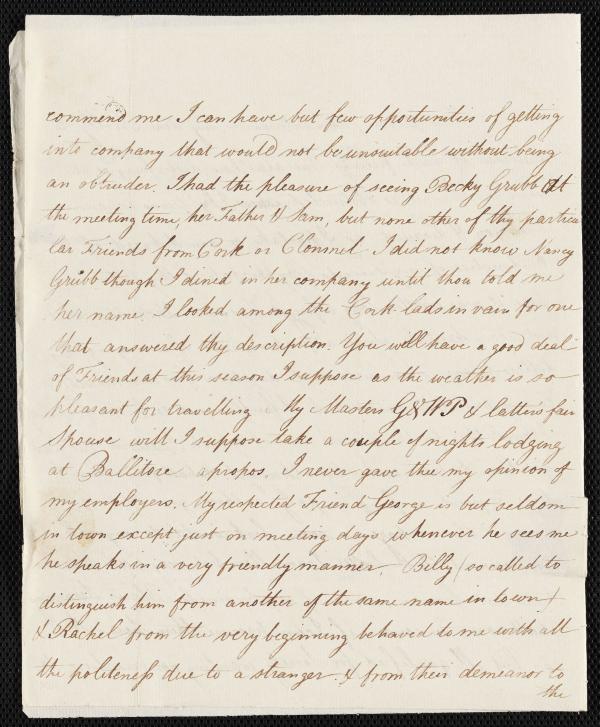 commend me I can have but few opportunities of getting
into company that would not be unsuitable without being
an obtruder. I had the pleasure of seeing Becky Grubb At
the meeting time, her Father & Sam, but none other of thy particu
lar Friends from Cork or Clonmel I did not know Nancy
Grubb though I dined in her company until thou told me
her name. I looked among the Cork lads in vain for one
that answered thy description. You will have a good deal
of Friends at this season I suppose as the weather is so
pleasant for travelling My Masters G & WP & latter's fair
Spouse will I suppose take a couple of nights lodging
at Ballitore apropos. I never gave thee my opinion of
my employers. My respected Friend George is but seldom
in town except just on meeting days whenever he sees me
he speaks in a very friendly manner. Billy (so called to
distinguish him from another of the same name in town)
& Rachel from the very beginning behaved to me with all
the politeness due to a stranger. & from their demeanor to
the